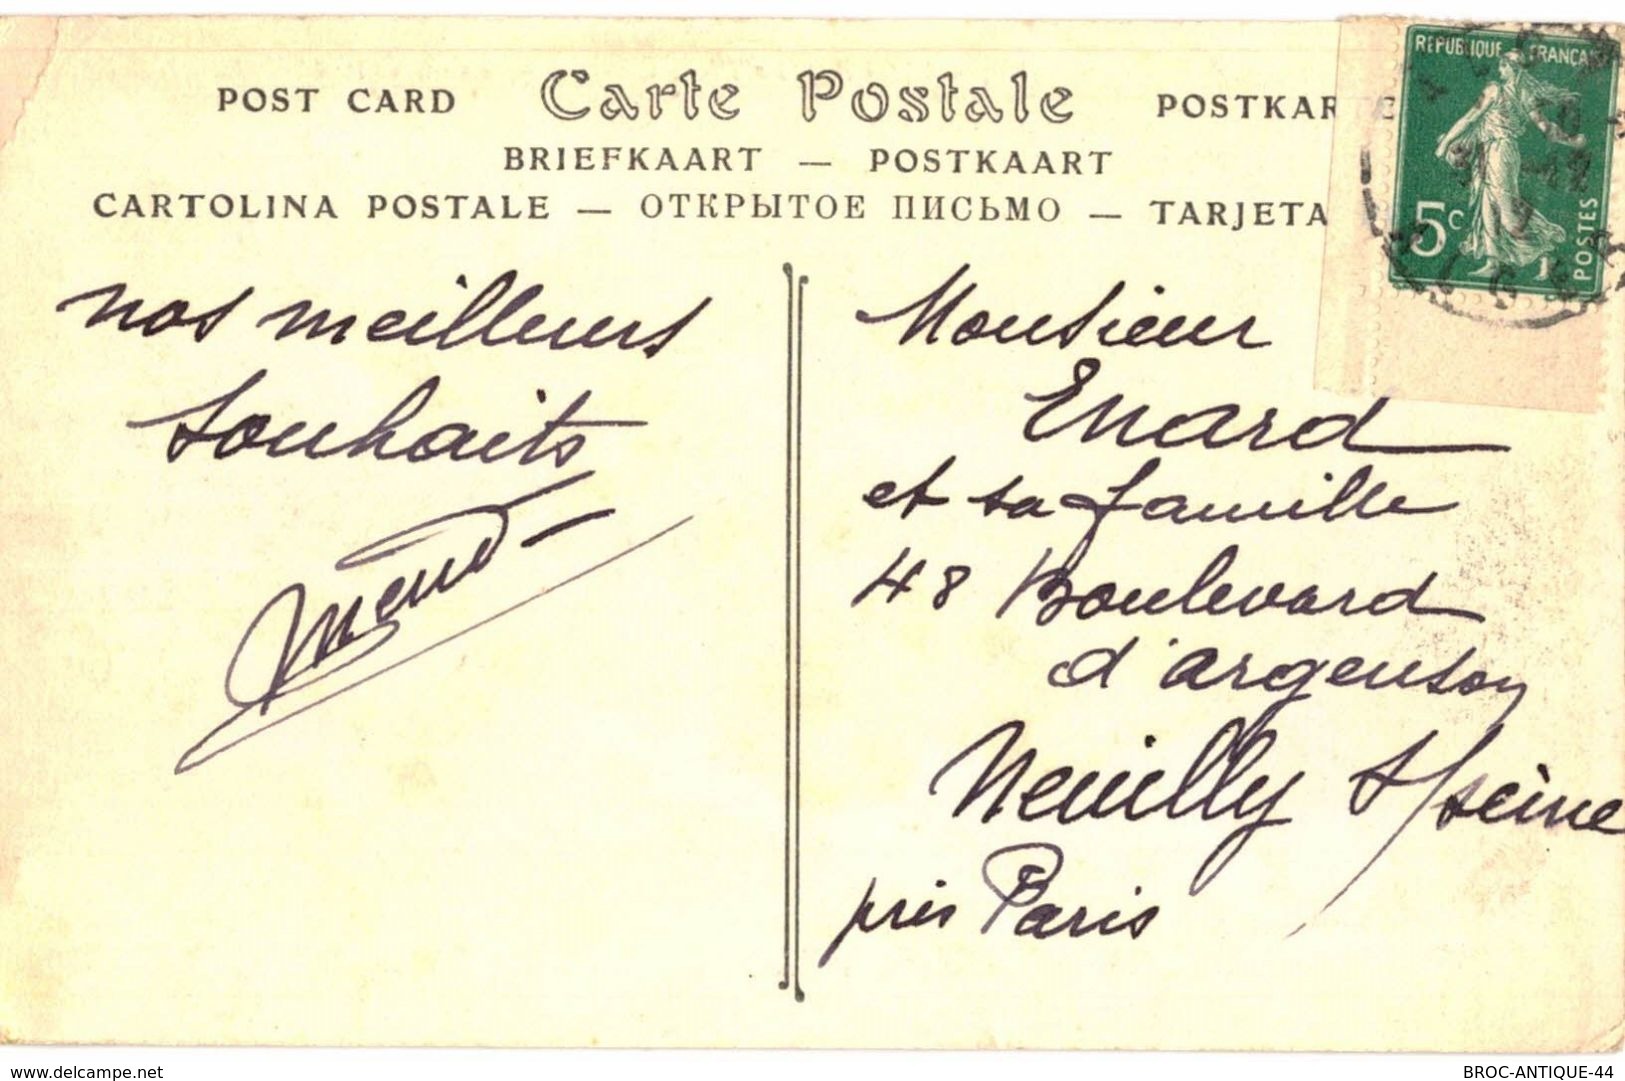 POST CARD Carte Postale POSTKARTE
BRIEFKAART — POSTKAART
CARTOLINA POSTALE — ОТКРЫТОЕ ПИСЬМО — TARJETA
REPUBLIQUE FRANÇAISE
5c
POSTES
nos meilleurs
souhaits
Monsieur
Enard
et sa famille
48 Boulevard
d'argenson
Neuilly s/seine
près Paris
delcampe.net
BROC-ANTIQUE-44